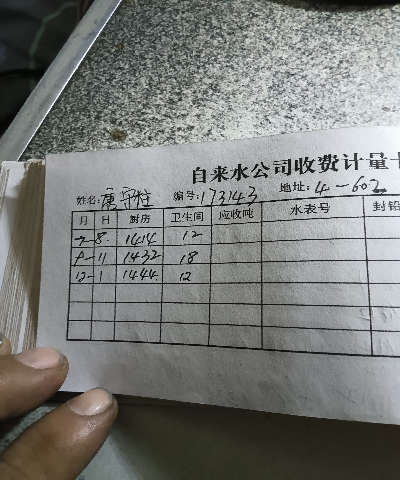 自来水公司收费计量
姓名:唐守柱 编号:173143 地址:4-602
月 日 厨房 卫生间 应收吨 水表号 封铅
7-8. 1414 12
9-11 1432 18
12-1 1444. 12